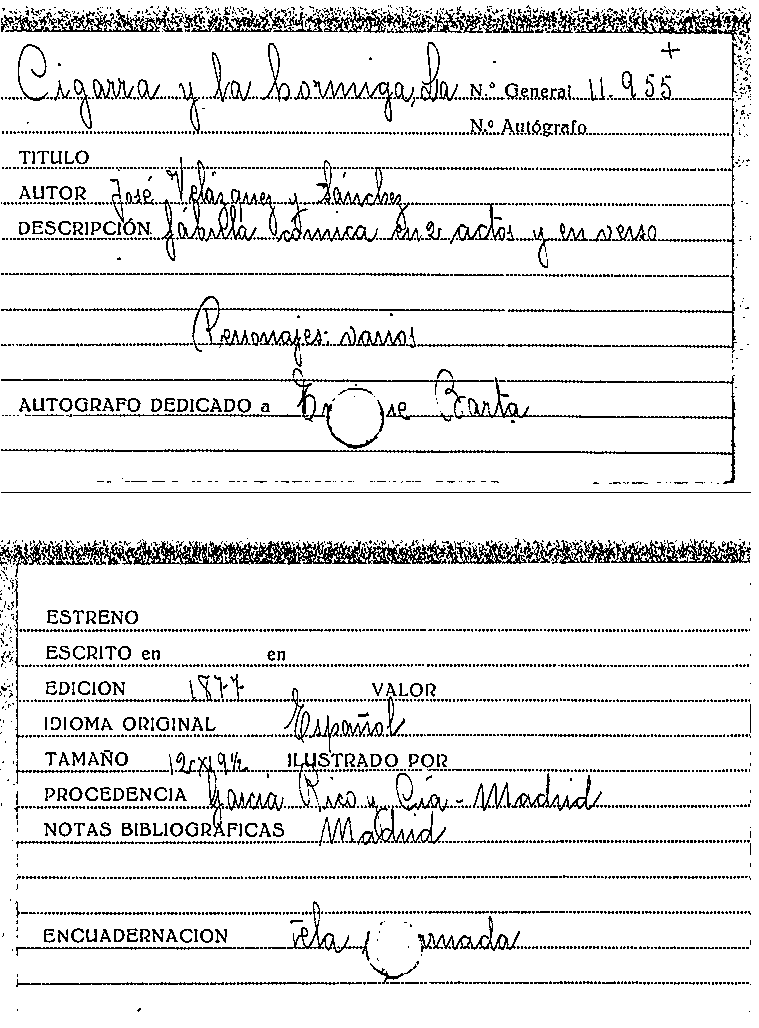 Cigarra y la hormiga, La N.º General 11.955
N.º Autógrafo
TITULO
AUTOR José Velázquez y Sánchez
DESCRIPCIÓN fábula cómica en 2 actos y en verso
Personajes: varios
AUTOGRAFO DEDICADO a Barta
ESTRENO
ESCRITO en en
EDICION 1877 VALOR
IDIOMA ORIGINAL Español
TAMAÑO 12x19½ ILUSTRADO POR
PROCEDENCIA García Rico y Cía - Madrid
NOTAS BIBLIOGRÁFICAS Madrid
ENCUADERNACION Tela